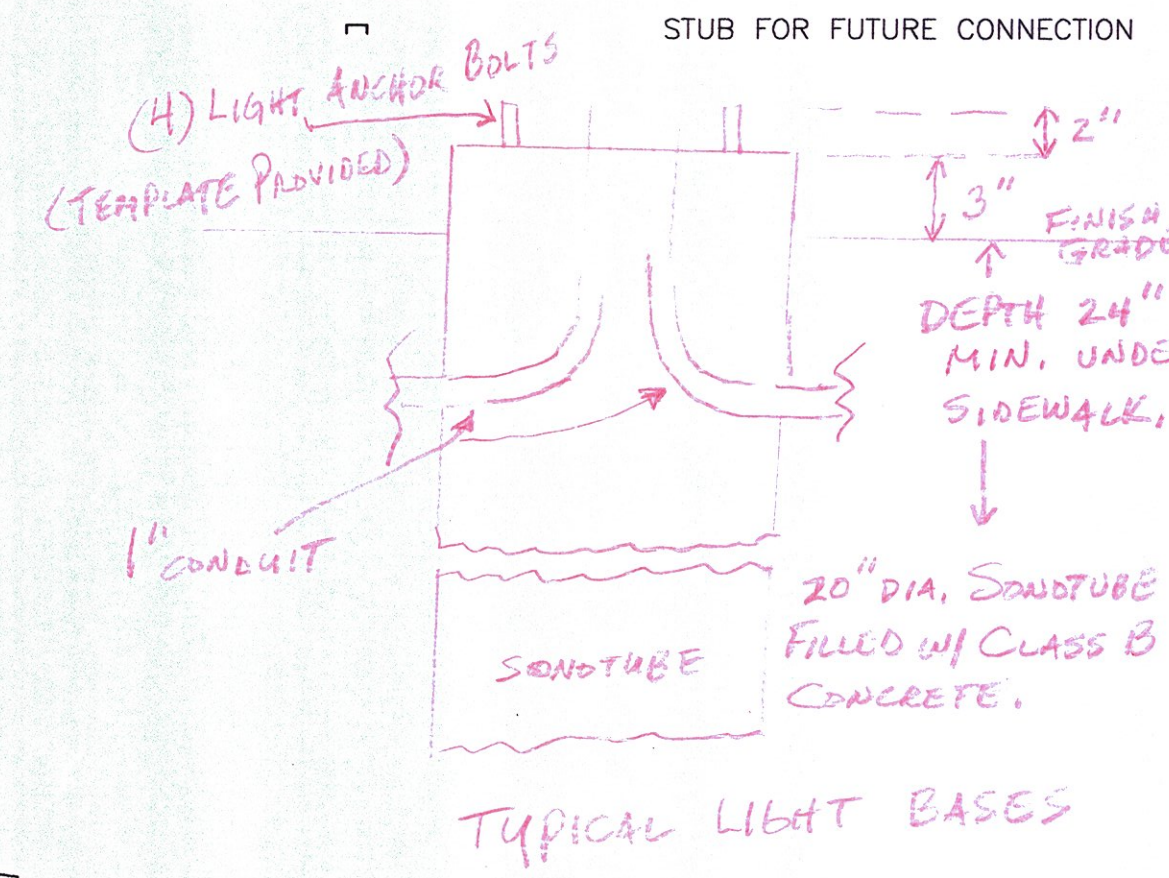 STUB FOR FUTURE CONNECTION
(4) LIGHT ANCHOR BOLTS
(TEMPLATE PROVIDED)
2"
3"
FINISH
GRADE
DEPTH 24"
MIN. UNDE
SIDEWALK.
1" CONDUIT
20" DIA. SONOTUBE
FILLED W/ CLASS B
CONCRETE.
SONOTUBE
TYPICAL LIGHT BASES